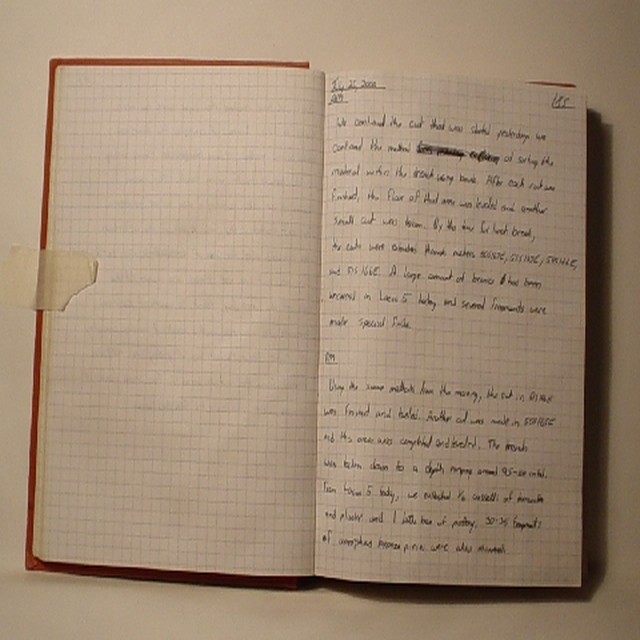 July 26, 2000
AM
We continued the cut that was started yesterday. We
continued the method of sorting the
material within the trench using bone. After each cut was
finished, the floor of that area was leveled and another
small cut was taken. By the time for lunch break,
the cuts were extended through meters
and 515/166E. A large amount of bronze has been
recovered in Locus 5 today and several fragments were
made special finds.
PM
Using the same methods from the morning, the cut in
was finished and leveled. Another cut was made in
and this area was completed and leveled. The trench
was taken down to a depth ranging around
From Locus 5 today, we collected 1/2 cassetti of
and plaster and 1 little box of pottery. 30-35 fragments
of amorphous bronze pieces were also recovered.